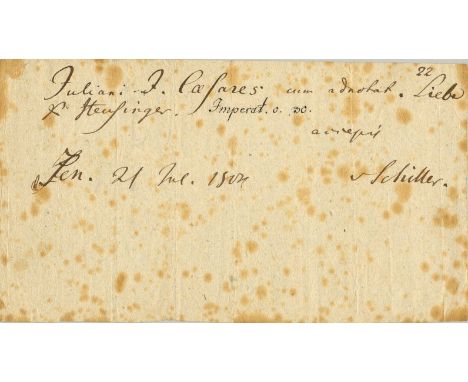 22
Juliani I. Caesares cum adnotat. Liebe
& Heusinger. Imperat. o. oc.
accepi
Jen. 21 Jul. 1804 v Schiller.